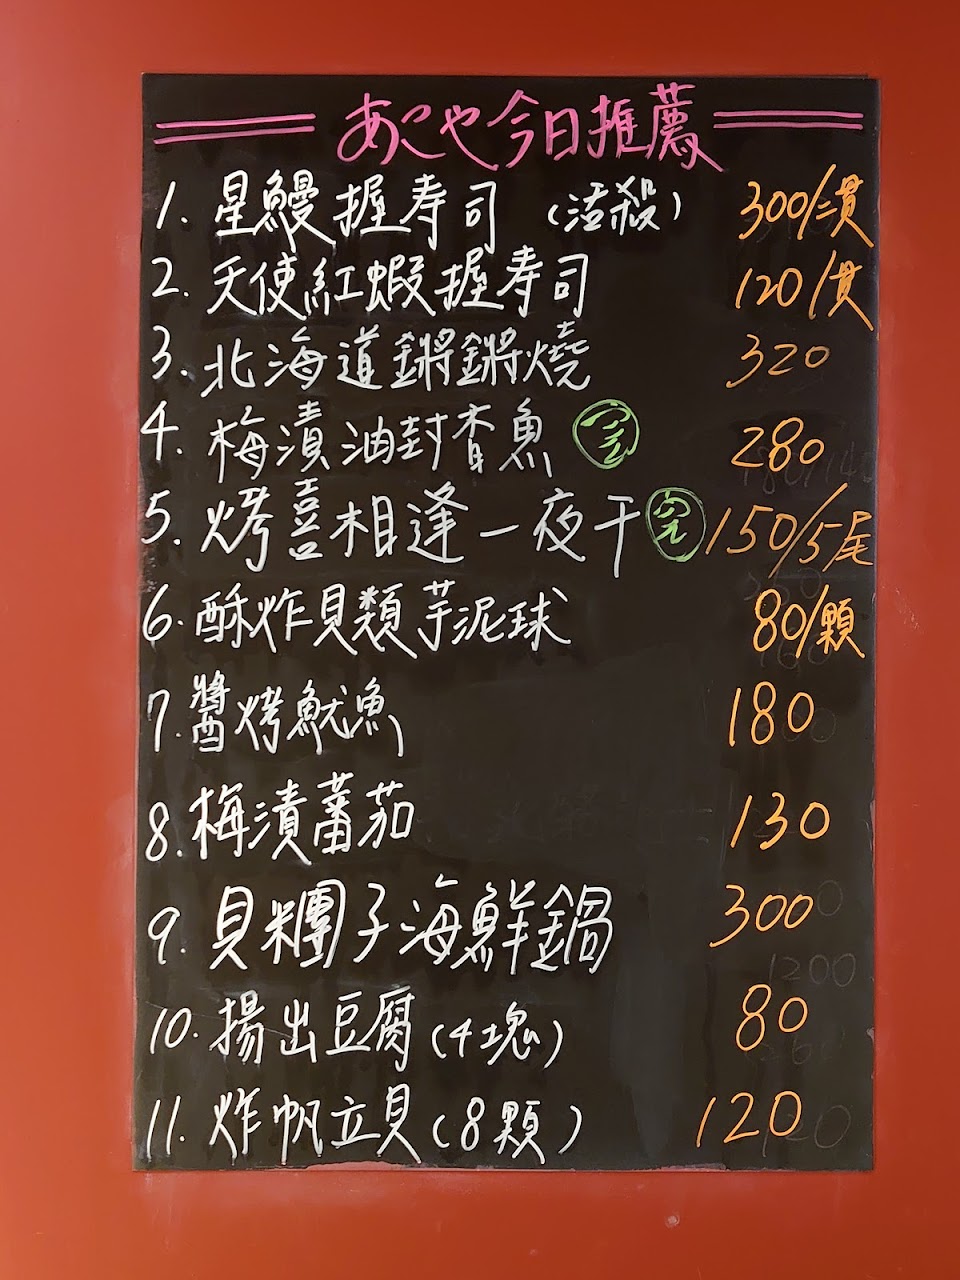 あこや今日推薦
1. 星鰻握寿司 (活殺) 300/二貫
2. 天使紅蝦握寿司 120/貫
3. 北海道鏘鏘燒 320
4. 梅漬油封香魚 完 280
5. 烤喜相逢一夜干 完 150/5尾
6. 酥炸貝類芋泥球 80/顆
7. 醬烤魷魚 180
8. 梅漬蕃茄 130
9. 貝糰子海鮮鍋 300
10. 揚出豆腐(4塊) 80
11. 炸帆立貝(8顆) 120